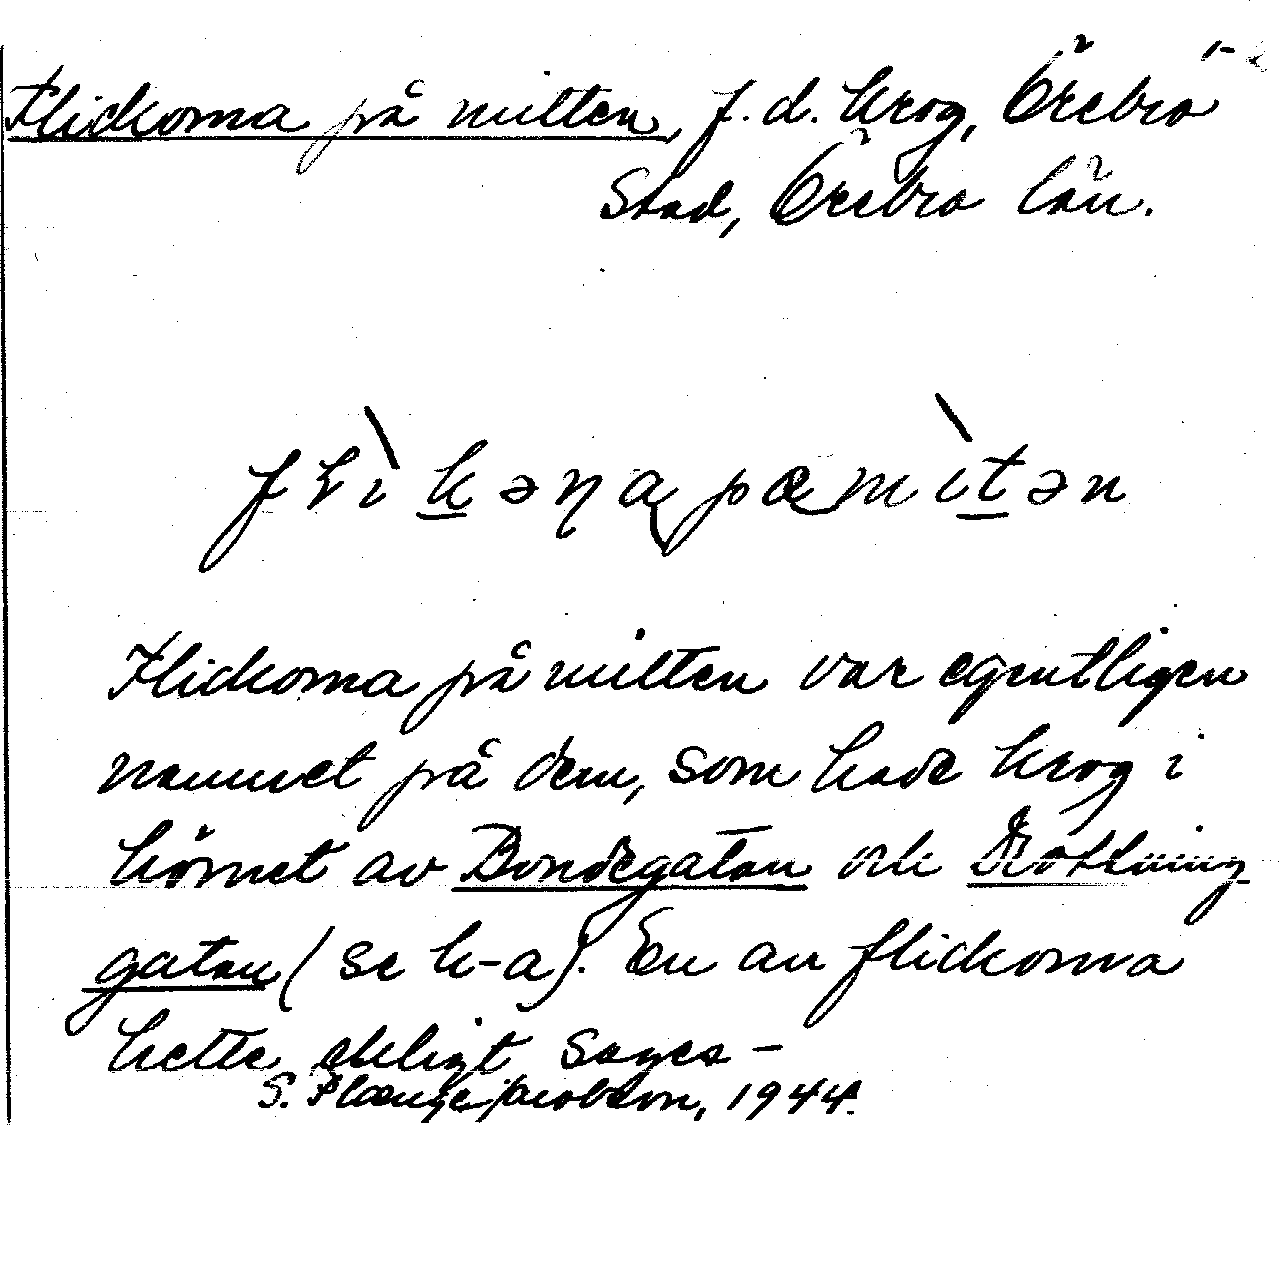 Flickorna på mitten, f.d. krog, Örebro
Stad, Örebro län.
Flickorna på mitten var egentligen
namnet på dem, som hade krog i
hörnet av Bondegatan och Drottning
gatan (se k-a). En av flickorna
hette enligt sages-
S. Plænge Jacobson, 1944.